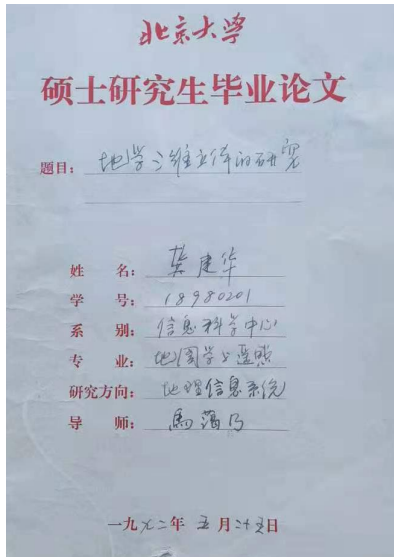 北京大学
硕士研究生毕业论文
题目：地学三维立体的研究
姓 名：龚建华
学 号：18980201
系 别：信息科学中心
专 业：地图学与遥感
研究方向：地理信息系统
导 师：馬蔼乃
一九九二年五月二十五日